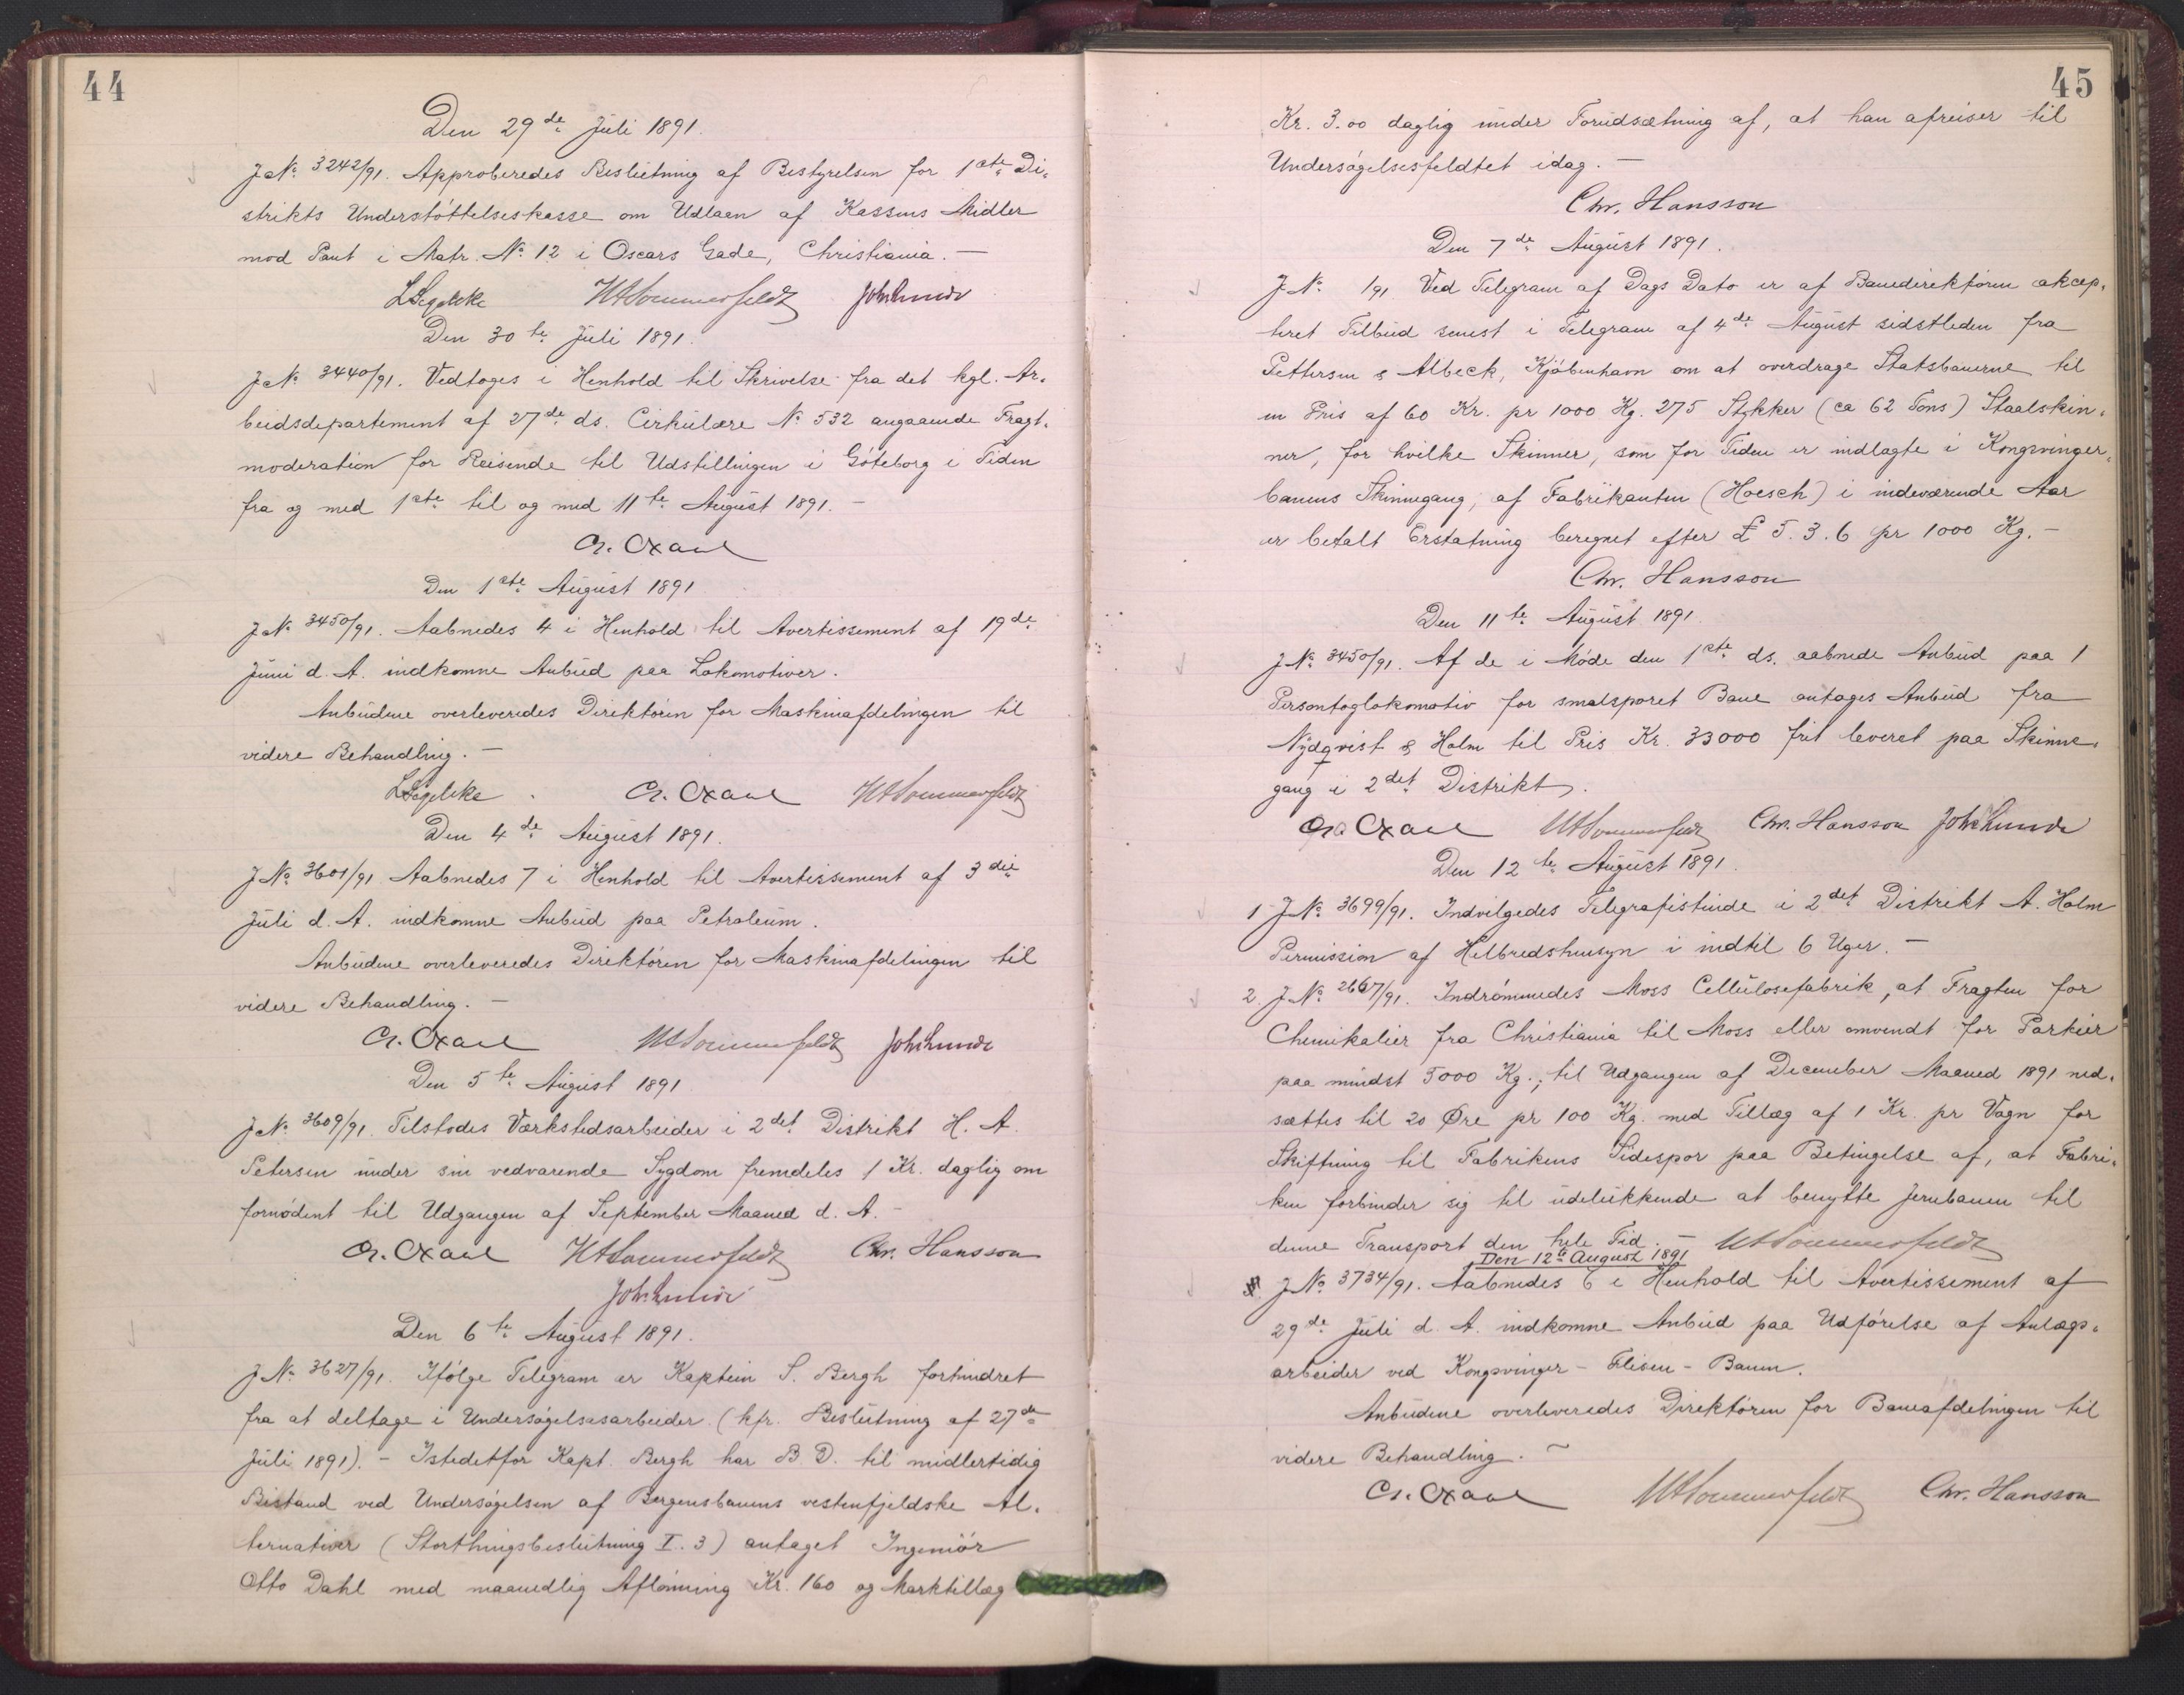 44
Den 29de Juli 1891.
J.No. 3242/91. Approberedes Beslutning af Bestyrelsen for 1ste Di-
strikts Understöttelseskasse om Udlaan af Kassens Midler
mod Pant i Matr. No. 12 i Oscars Gade, Christiania. —
LSegelcke HASommerfeldt JohLunde
Den 30te Juli 1891.
J.No. 3440/91. Vedtoges i Henhold til Skrivelse fra det kgl. Ar-
beidsdepartement af 27de ds. Cirkulære No. 532 angaaende Fragt-
moderation for Reisende til Udstillingen i Göteborg i Tiden
fra og med 1ste til og med 11te August 1891. —
Den 1ste August 1891
J.No. 3450/91. Aabnedes 4 i Henhold til Avertissement af 19de
Juni d. A. indkomne Anbud paa Lokomotiver.
Anbudene overleveredes Direktören for Maskinafdelingen til
videre Behandling. —
LSegelcke HASommerfeldt
Den 4de August 1891.
J.No. 3601/91 Aabnedes 7 i Henhold til Avertissement af 3die
Juli d. A. indkomne Anbud paa Petroleum.
Anbudene overleveredes Direktören for Maskinafdelingen til
videre Behandling. —
HASommerfeldt JohLunde
Den 5te August 1891
J.No. 3609/91. Tilstodes Værkstedsarbeider i 2det Distrikt H. A.
Petersen under sin vedvarende Sygdom fremdeles 1 Kr. daglig om
fornödent til Udgangen af September Maaned d. A. —
HASommerfeldt Chr. Hansson
JohLunde
Den 6te August 1891.
J.No. 3627/91. Ifölge Telegram er Kaptein S. Bergh forhindret
fra at deltage i Undersögelsesarbeider (kfr. Beslutning af 27de
Juli 1891). — Istedetfor Kapt. Bergh har B. D. til midlertidig
Bistand ved Undersögelsen af Bergensbanens vestenfjeldske Al-
ternativer (Storthingsbeslutning I. 3) antaget Ingeniör
Otto Dahl med maanedlig Aflönning Kr. 160 og Marktillæg
45
Kr. 3.00 daglig under Forudsætning af, at han afreiser til
Undersögelsesfeldtet idag. —
Chr. Hansson
Den 7de August 1891.
J.No. /91 Ved Telegram af Dags Dato er af Banedirektören akcep-
teret Tilbud senest i Telegram af 4de August sidstleden fra
Pettersen & Albeck, Kjöbenhavn om at overdrage Statsbanerne til
en Pris af 60 Kr. pr 1000 Kg. 275 Stykker (ca 62 Tons) Staalskin-
ner, for hvilke Skinner, som for Tiden er indlagte i Kongsvinger-
banens Skinnegang, af Fabrikanten (Hoesch) i indeværende Aar
er betalt Erstatning beregnet efter £ 5. 3. 6 pr 1000 Kg. —
Chr. Hansson
Den 11te August 1891.
J.No. 3450/91. Af de i Möde den 1ste ds. aabnede Anbud paa 1
Persontoglokomotiv for smalsporet Bane antages Anbud fra
Nydqvist & Holm til Pris Kr. 33000 frit leveret paa Skinne-
gang i 2det Distrikt.
HASommerfeldt Chr. Hansson JohLunde
Den 12te August 1891.
1. J.No. 3699/91. Indvilgedes Telegrafistinde i 2det Distrikt A. Holm
Permission af Helbredshensyn i indtil 6 Uger. —
2. J.No. 2667/91. Indrömmedes Moss Cellulosefabrik, at Fragten for
Chemikalier fra Christiania til Moss eller omvendt for Partier
paa mindst 5000 Kg., til Udgangen af December Maaned 1891 ned-
sættes til 20 Øre pr 100 Kg. med Tillæg af 1 Kr. pr Vogn for
Skiftning til Fabrikens Sidespor paa Betingelse af, at Fabri-
ken forbinder sig til udelukkende at benytte Jernbanen til
denne Transport den hele Tid. — HASommerfeldt
Den 12te August 1891
J.No. 3734/91. Aabnedes 6 i Henhold til Avertissement af
29de Juli d. A. indkomne Anbud paa Udförelse af Anlægs-
arbeider ved Kongsvinger - Flisen - Banen.
Anbudene overleveredes Direktören for Baneafdelingen til
videre Behandling. —
HASommerfeldt Chr. Hansson